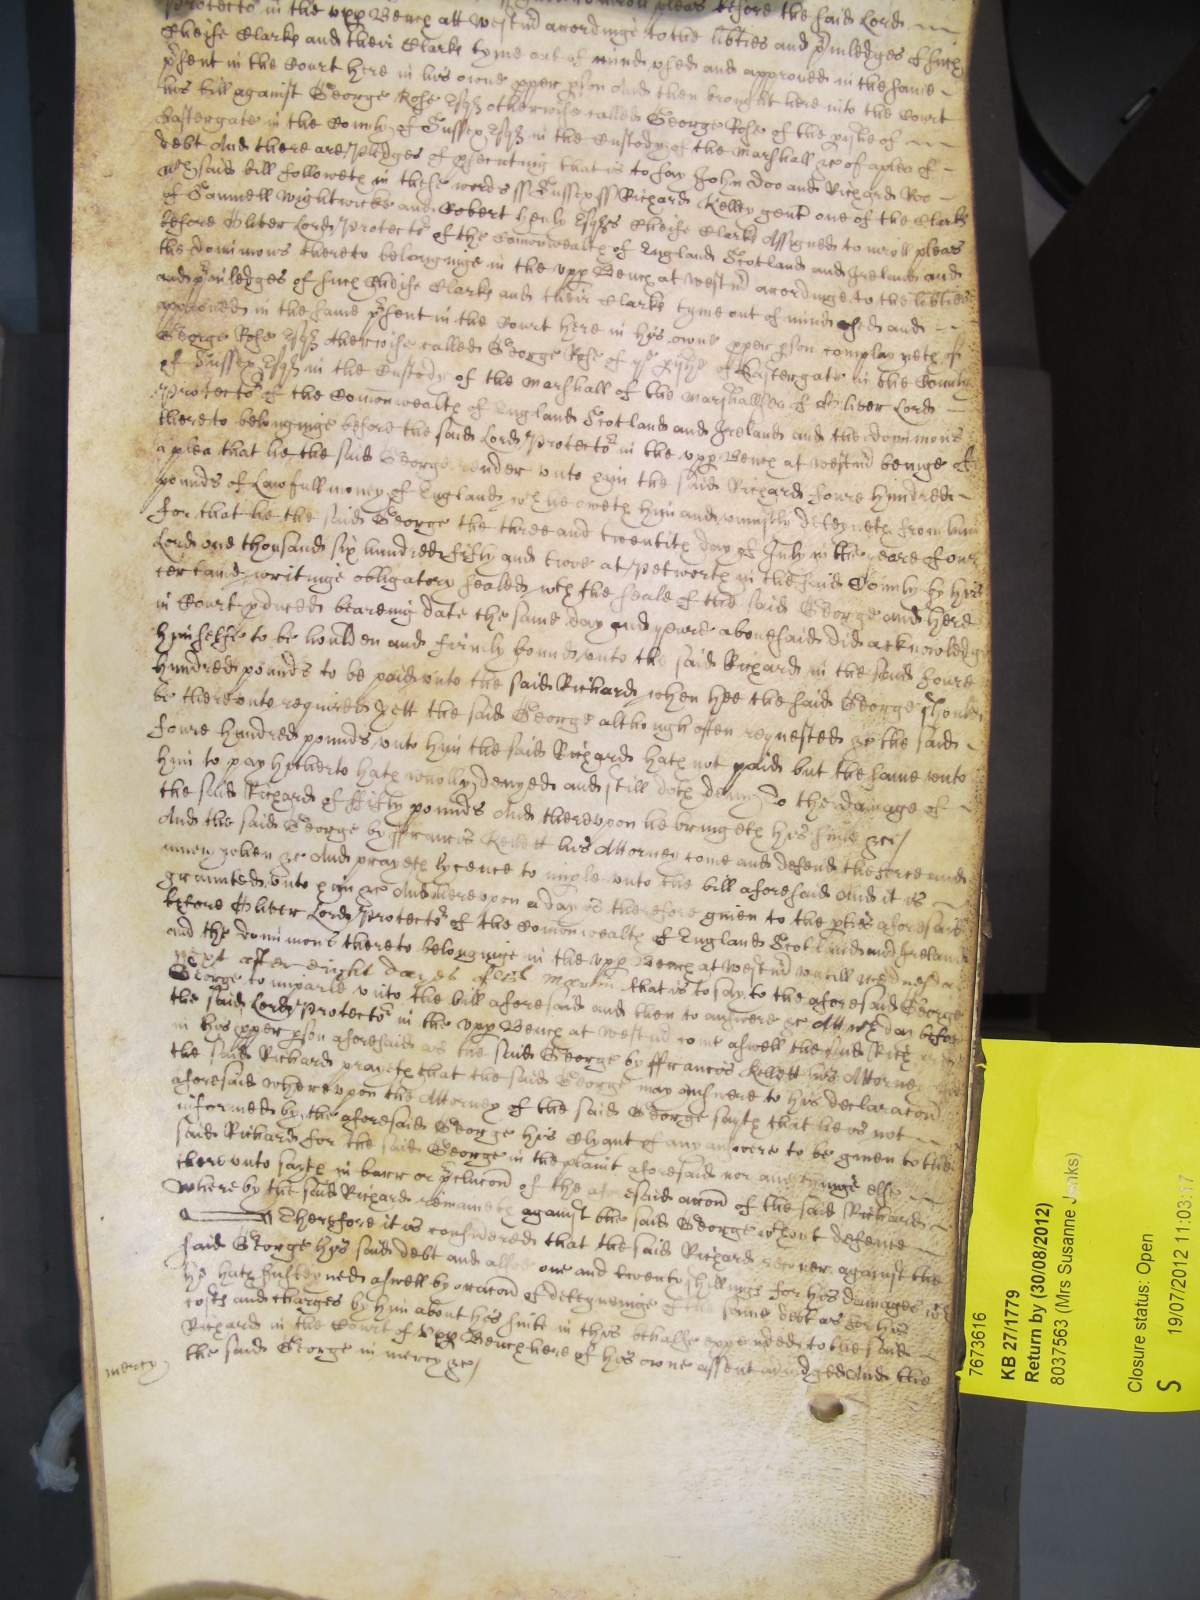 Protector in the upp Bench att Westmr acordinge to the libties and priviledges of such
Cheife Clarke and their Clarke tyme out of mind used and approved in the same
psent in the Court here in his owne pper pson And then brought here into the Court
his bill against George Rose Esqr otherwise called George Rose of the pishe of
Eastergate in the County of Sussex Esqr in the Custody of the Marshall &c of a plea of
debt And there are pledges of psecuting that is to say John Doo and Richard Roo
wch said bill followeth in these words ss Sussex ss Richard Kellett gent one of the Clarks
of Samuell Wightwicke and Robert Henly Esqrs Cheife Clarke Assigned to inroll pleas
before Oliver Lord Protector of the Comonwealth of England Scotland and Ireland and
the dominions thereto belonginge in the upp Bench at Westmr acordinge to the libties
and priviledges of such Cheife Clarke and their Clarke tyme out of mind used and
approved in the same psent in the Court here in his owne pper pson complayneth of
George Rose Esqr otherwise called George Rose of ye pishe of Eastergate in the County
of Sussex Esqr in the Custody of the Marshall of the Marshallsey of Oliver Lord
Protector of the Comonwealth of England Scotland and Ireland and the dominions
thereto belonginge before the said Lord Protector in the upp Bench at Westmr beinge of
a plea that he the said George render unto him the said Richard foure hundred
pounds of Lawfull mony of England wch he oweth him and uniustly deteyneth from him
for that he the said George the three and twentith day of July in the yeare of our
Lord one thousand six hundred fifty and twoe at Petworth in the said County by his
certaine writinge obligatory sealed wth the seale of the said George and here
in Court pduced bearing date the same day and yeare abovesaid did acknowledge
himselfe to be houlden and firmly bound unto the said Richard in the said foure
hundred pounds to be paid unto the said Richard when hee the said George should
be thereunto required yett the said George although often requested &c the said
foure hundred pounds unto him the said Richard hath not paid but the same unto
him to pay hitherto hath wholly denyed and still doth deny To the damage of
the said Richard of fifty pounds And thereupon he bringeth his suite &c/
And the said George by ffrancis Kellett his Attorney come and defend the force and
iniury when &c And prayeth lycence to imple unto the bill aforesaid And it is
graunted unto him &c And hereupon a day is therefore given to the pties aforesaid
before Oliver Lord Protector of the Comonwealth of England Scotland and Ireland
and the dominions thereto belonginge in the upp Bench at Westmr untill wednesday
next after eight dayes of St Martin that is to say to the aforesaid George
George to imparle unto the bill aforesaid and then to answere &c Att wch day before
the said Lord Protector in the upp Bench at Westmr come aswell the said Rich
in his pper pson aforesaid as the said George by ffrancis Kellett his Attorney
the said Richard prayeth that the said George may answere to his declaracon
aforesaid whereupon the Attorney of the said George sayth that he is not
informed by the aforesaid George his Clyant of any answere to be given to the
said Richard for the said George in the plaint aforesaid nor anythinge else
thereunto sayth in barr or pclucon of the aforesaid accon of the said Richard
whereby the said Richard remaineth against the said George wthout defence
Therefore it is considered that the said Richard recover against the
said George his said debt and alsoe one and twenty shillings for his damages wch
he hath susteyned aswell by occacon of deteyneinge of the same debt as for his
costs and charges by him about his suite in this behalfe expended to the said
Richard in the Court of Upp Bench here of his owne assent adiudged And the
mercy
the said George in mercy &c/
7673616
KB 27/1779
Return by (30/08/2012)
8037563 (Mrs Susanne Jenks)
Closure status: Open
S 19/07/2012 11:03:17